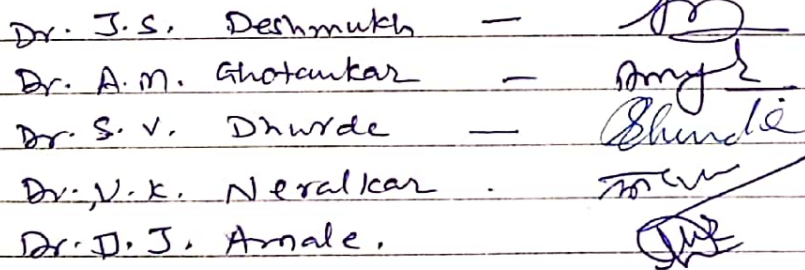 Dr. J. S. Deshmukh —
Dr. A. M. Ghotankar —
Dr. S. V. Dhurde —
Dr. V. K. Neralkar .
Dr. D. J. Amale.